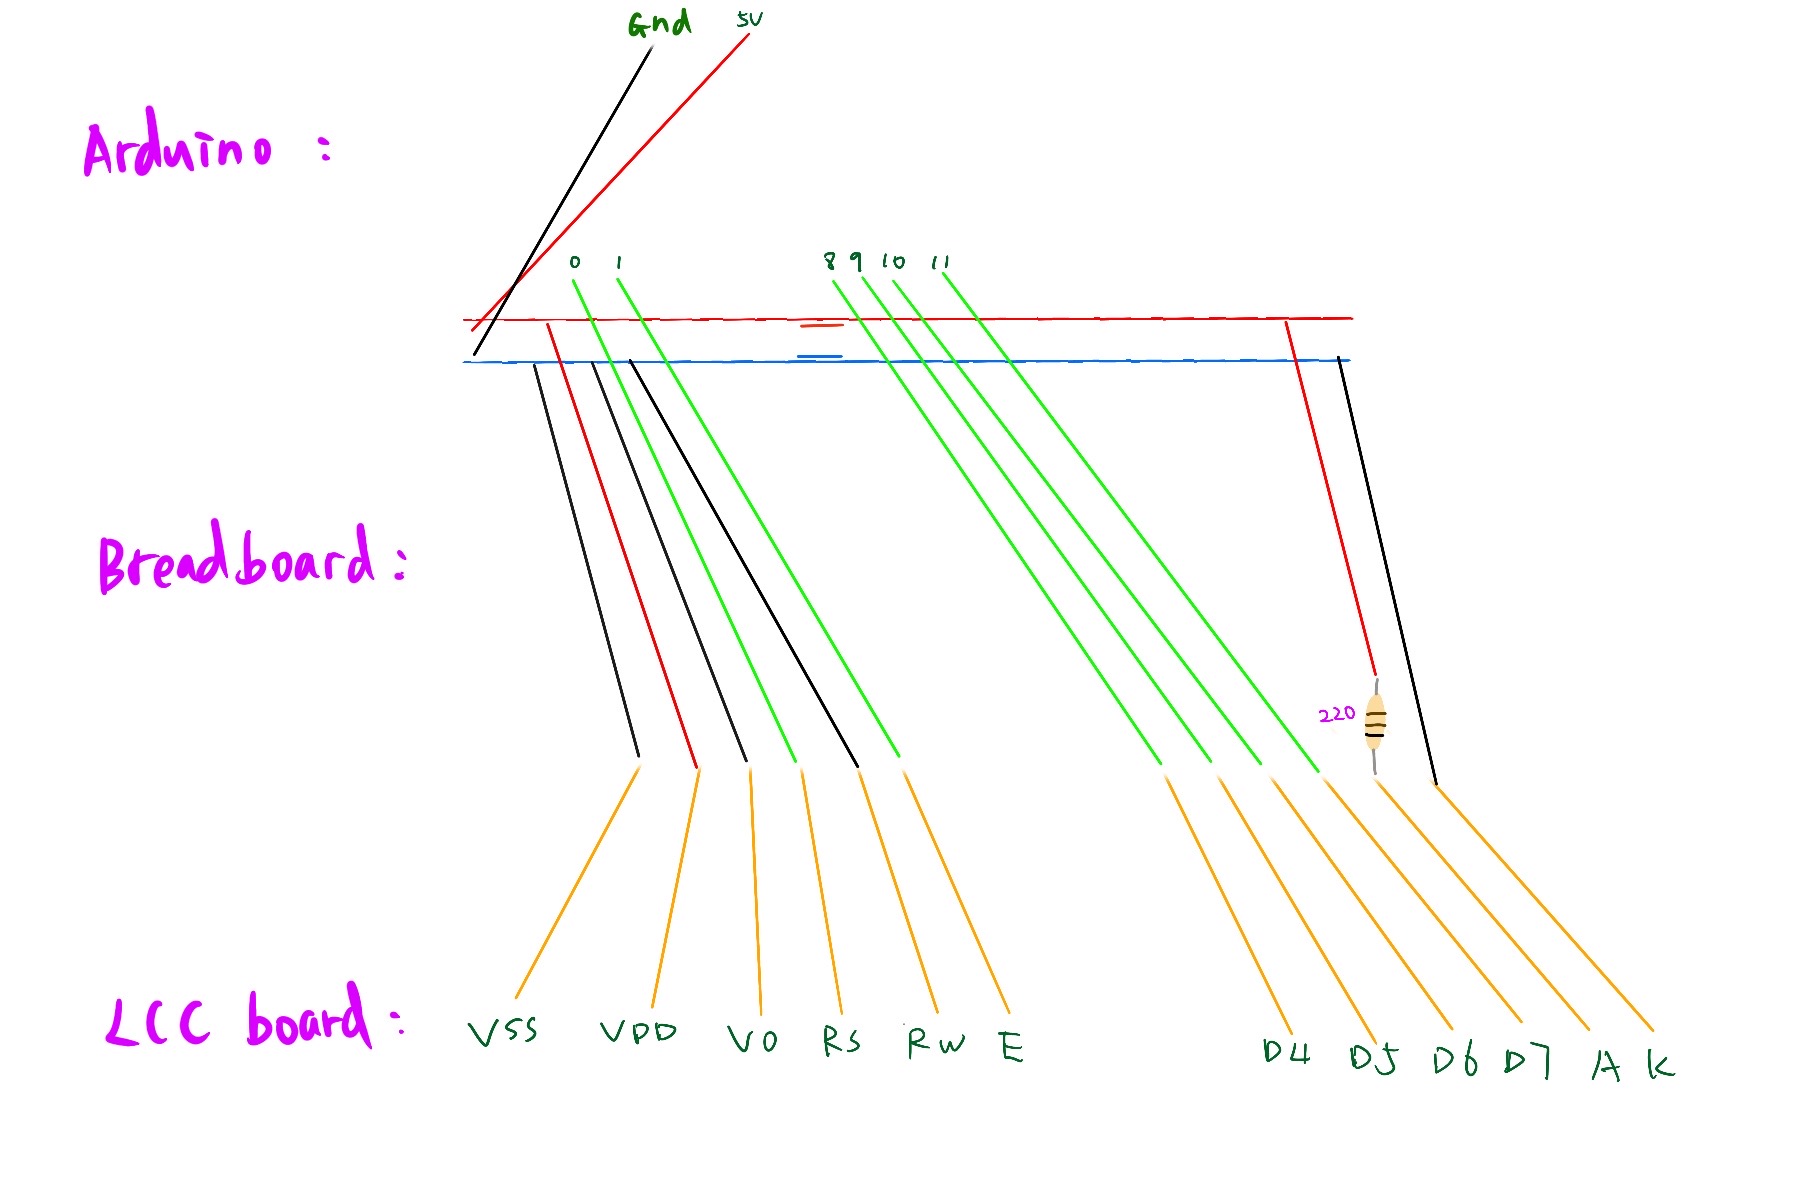 Gnd 5V
Arduino :
0 1 8 9 10 11
Breadboard :
220
LCC board :
VSS VDD VO RS RW E D4 D5 D6 D7 A K